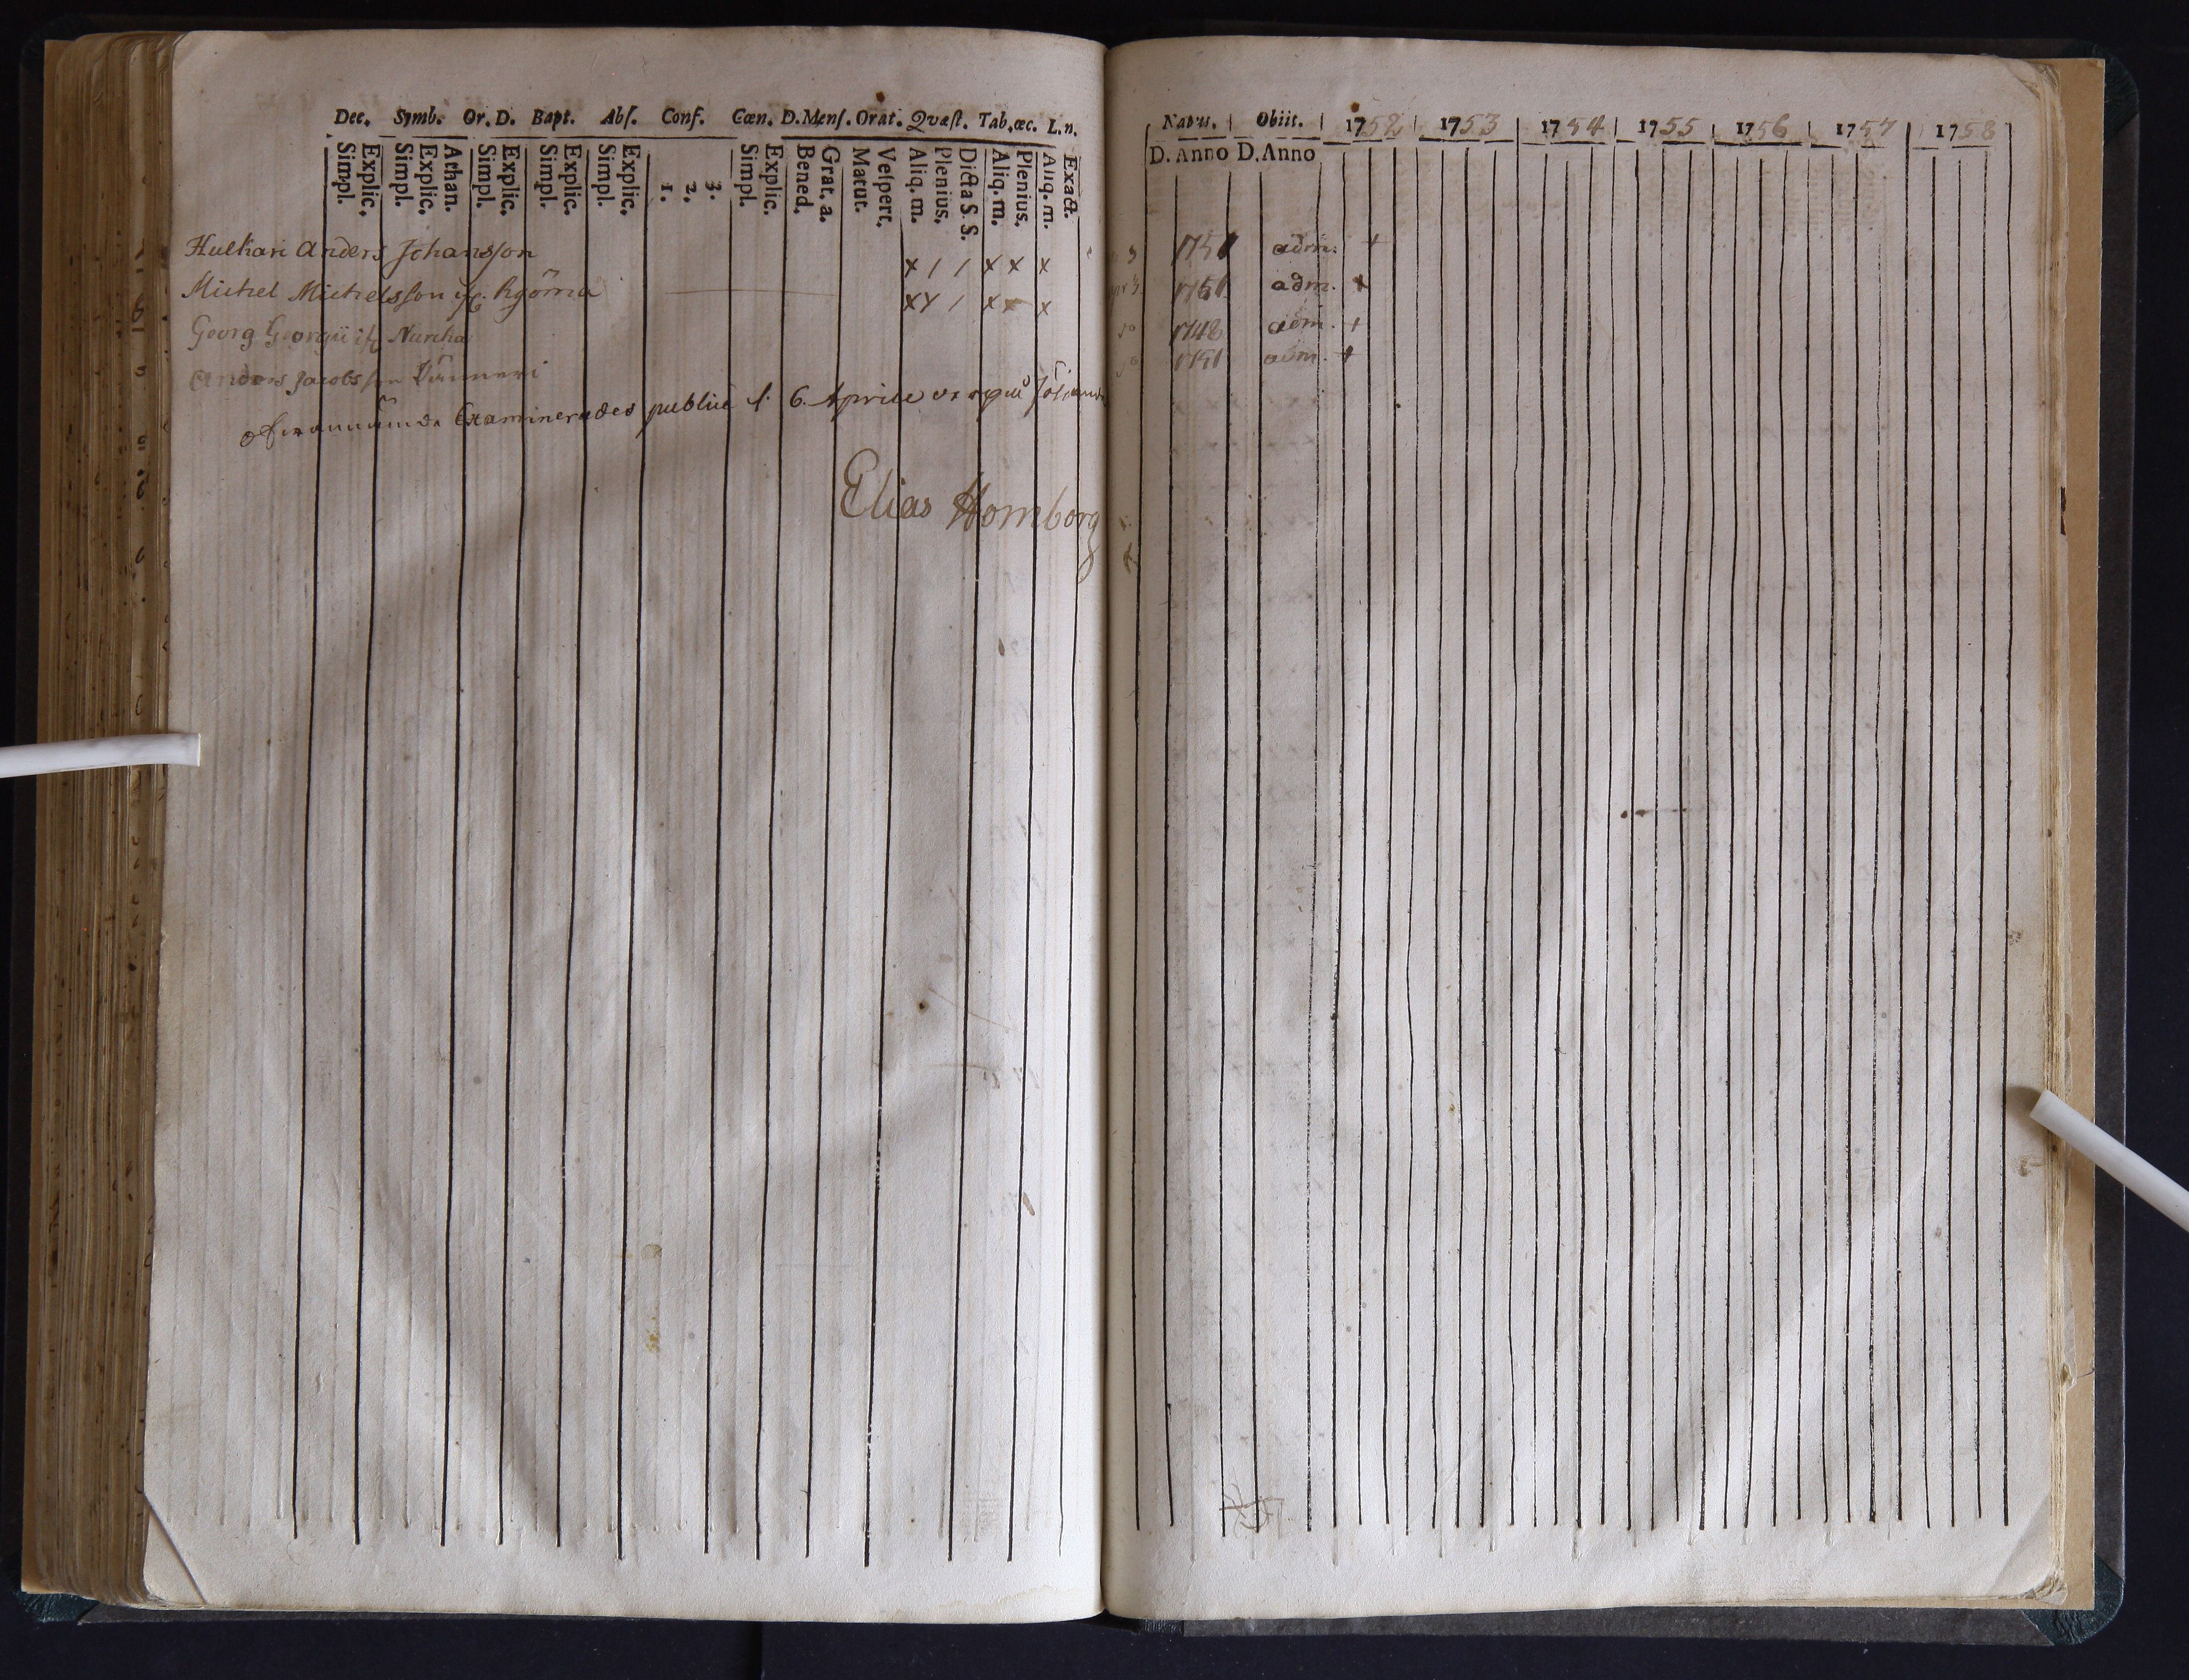 Dec. Symb. Or. D. Bapt. Abſ. Conf. Cœn. D. Menſ. Orat. Qvæſt. Tab. œc. L. n.
Simpl. Explic. Simpl. Explic. Athan. Simpl. Explic. Simpl. Explic. Simpl. Explic. 1. 2. 3. Simpl. Explic. Bened. Grat. a. Matut. Veſpert. Aliq. m. Plenius. Dicta S S. Aliq. m. Plenius. Aliq. m. Exact.
Hulkari Anders Johansson x / / x x x
Michel Michelsson x x / x x x
Georg Georgii Nurcka
Anders Jacobsson
Examinerades publicè d. 6 Aprile
Elias Homborg
Natus. Obiit. 1752 1753 1754 1755 1756 1757 1758
D. Anno D. Anno
1751 adm. +
1751 adm. +
1748 adm. +
1751 adm. +